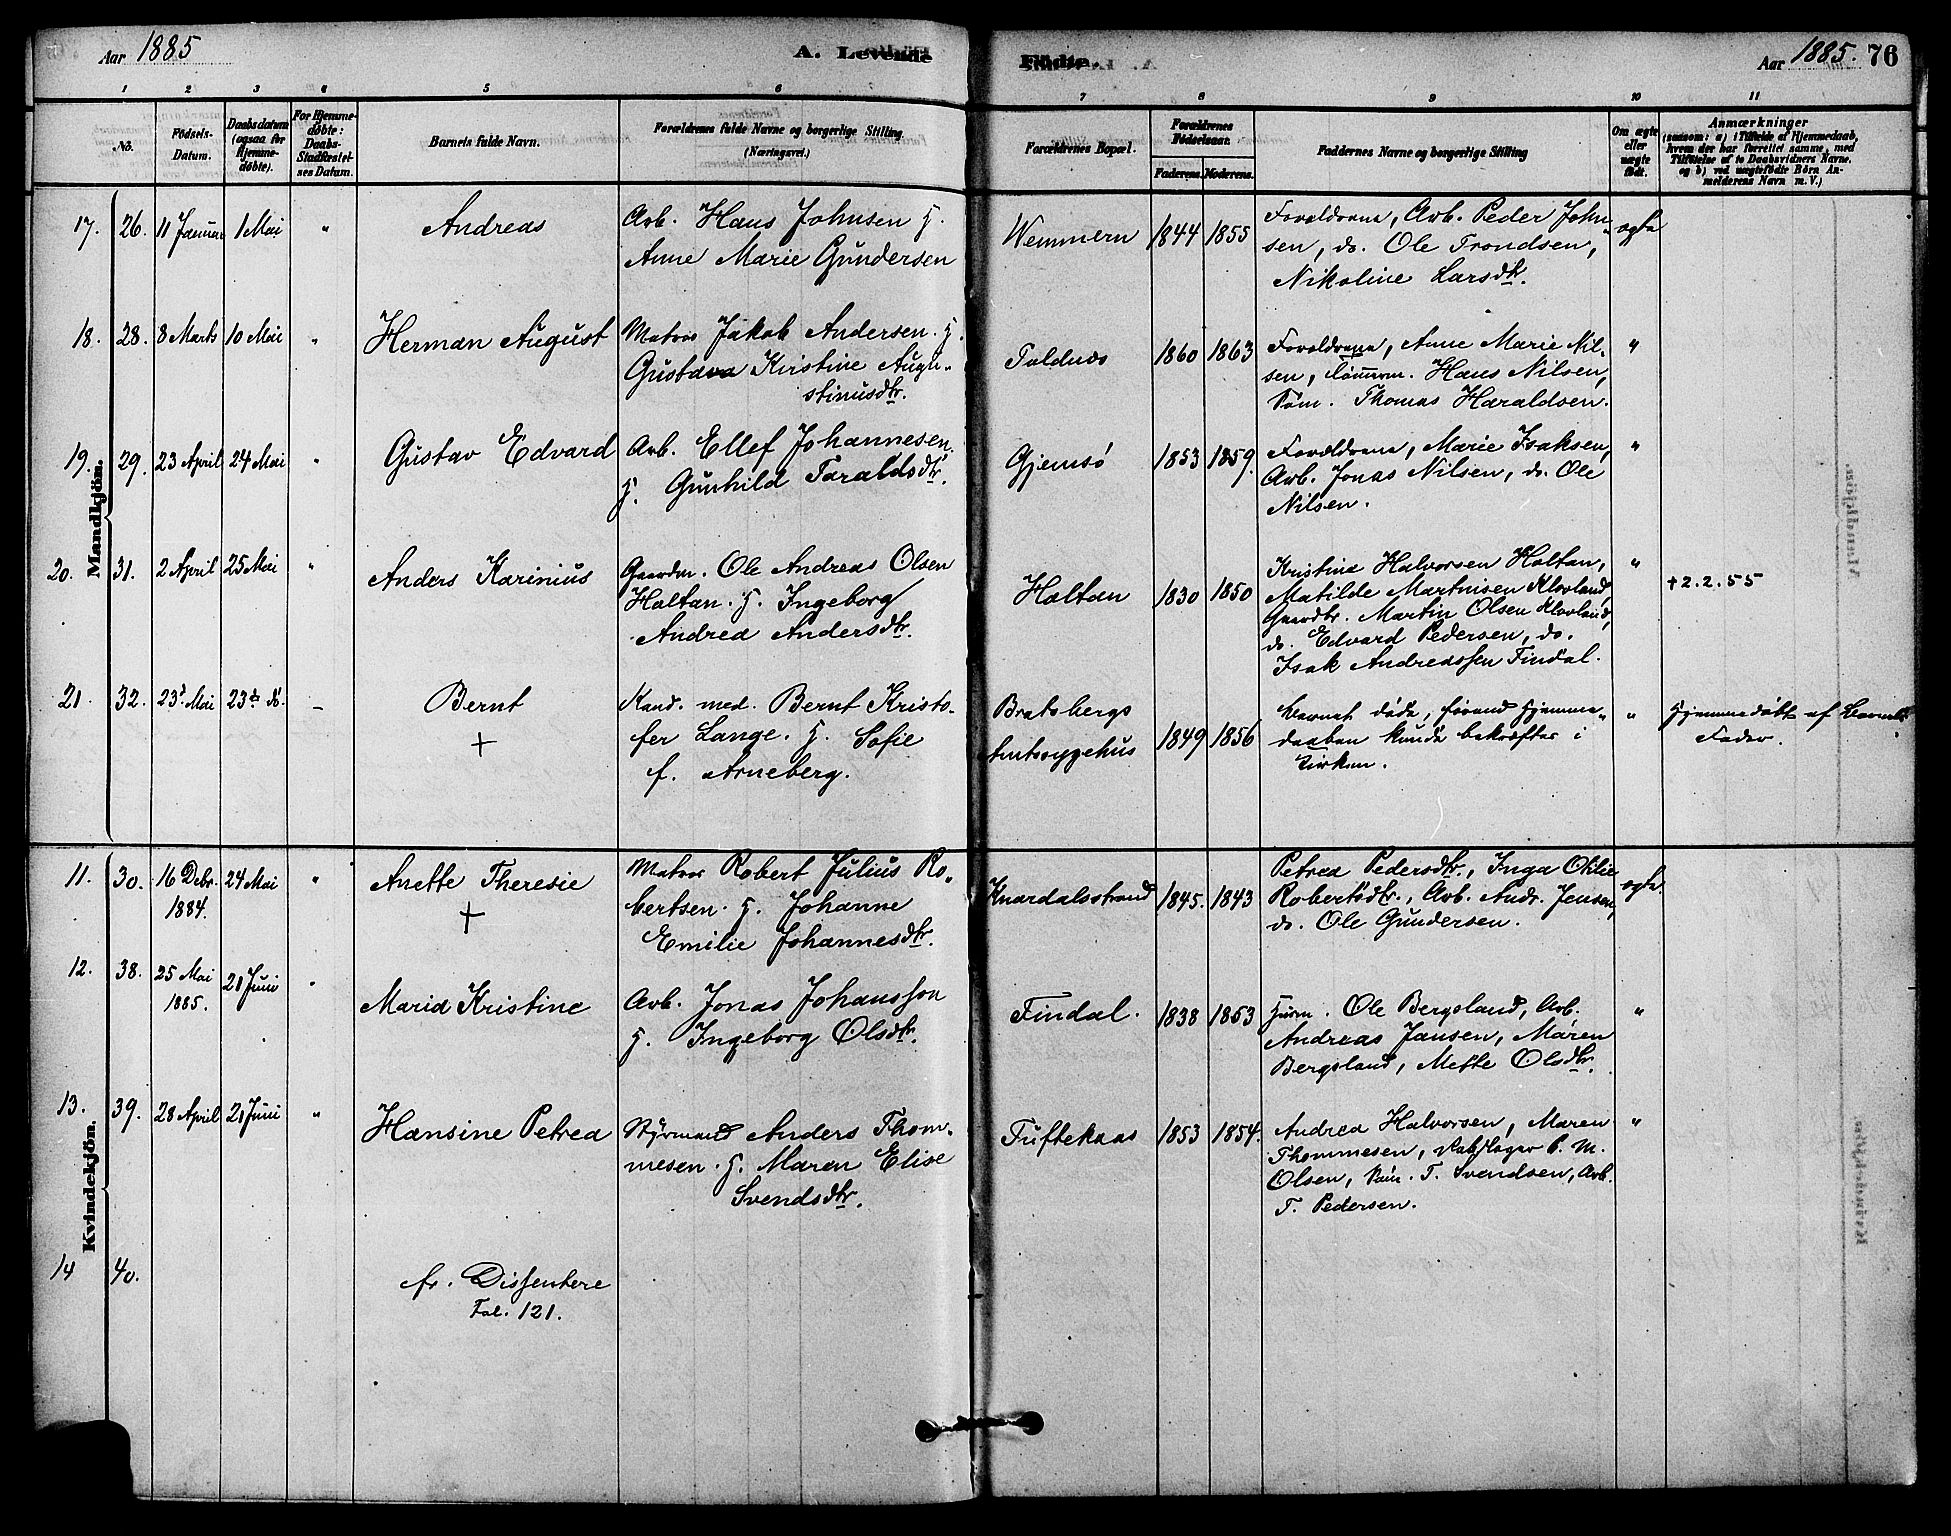 Aar 1885
A. Levende
Fødte.
Aar 1885. 76
1 2 3 4 5 6 7 8 9 10 11
No.
Fødsels-
Datum.
Daabsdatum
(ogsaa for
Hjemme-
døbte).
For Hjemme-
døbte:
Daabs-
Stadfæstel-
ses Datum.
Barnets fulde Navn.
Forældrenes fulde Navne og borgerlige Stilling.
(Næringsvei.)
Forældrenes Bopæl.
Forældrenes
Fødselsaar.
Faderens. Moderens.
Faddernes Navne og borgerlige Stilling
Om ægte
eller
uægte
født.
Anmærkninger
(saasom: a) i Tilfælde af Hjemmedaab,
hvem der har forrettet samme, med
Tilføielse af to Daabsvidners Navne.
og b) ved uægtefødte Børn An-
melderens Navn m. V.)
Mandkjøn.
17. 26. 11 Januar 1 Mai "
Andreas
Arb. Hans Johnsen H.
Anne Marie Gundersen
Wemmern 1844 1855
Forældrene, Arb. Peder John-
sen, do. Ole Trondsen,
Nikoline Larsdtr.
ægte
18. 28. 8 Marts 10 Mai "
Herman August
Matros Jakob Andersen. H.
Gustava Kristine Augu-
stinusdtr.
Toldnæs 1860 1863
Forældrene, Anne Marie Nil-
sen, Tømmerm. Hans Nilsen,
Søm. Thomas Haraldsen.
"
19. 29. 23 April 24 Mai "
Gustav Edvard
Arb. Ellef Johannesen.
H. Gunhild Taraldsdtr.
Gjemsø 1853 1859.
Forældrene, Marie Isaksen,
Arb. Jonas Nilsen, do. Ole
Nilsen.
"
20. 31. 2 April 25 Mai "
Anders Karinius
Gaardm. Ole Andreas Olsen
Holtan. H. Ingeborg
Andrea Andersdtr.
Holtan 1830 1850
Kristine Halvorsen Holtan,
Matilde Martnisen Klovland,
Gaardbr. Martin Olsen Klovland,
do. Edvard Pedersen, do.
Isak Andreassen Findal.
"
+2.2.55
21 32. 23d Mai 23de do. –
Bernt
+
Kand. med. Bernt Kristo-
fer Lange. H. Sofie
f. Arneberg.
Bratsbergs
Amtssygehus 1849 1856
Barnet døde, førend Hjemme-
daaben kunde bekræftes i
Kirken.
"
Hjemmedøbt af Barnets
Fader.
Kvindekjøn.
11. 30. 16 Debr. 24 Mai "
1884.
Anette Theresie
+
Matros Robert Julius Ro-
bertsen. H. Johanne
Emilie Johannesdtr.
Knardalsstrand 1845. 1843
Petrea Pedersdtr., Inga Otilie
Robertsdtr., Arb. Andr. Jensen,
do. Ole Gundersen.
ægte
12. 38. 25 Mai 21 Juni "
1885.
Maria Kristine
Arb. Jonas Johansson
H. Ingeborg Olsdtr.
Findal. 1838 1853
Husm. Ole Bergsland, Arb.
Andreas Jansen, Maren
Bergsland, Mette Olsdtr.
"
13. 39. 28 April 21 Juni "
Hansine Petrea
Styrmand Anders Thom-
mesen. H. Maren Elise
Svendsdtr.
Tuftekaas 1853 1854.
Andrea Halvorsen, Maren
Thommesen, P. M.
Olsen, Søm. T. Svendsen, Arb.
T. Pedersen.
"
14 40.
fr. Dissentere
Fol. 121.